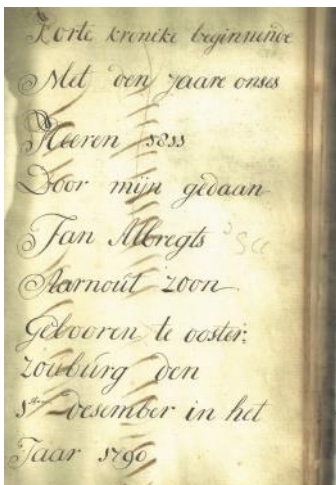 Korte kronike beginnende
Met den jaare onses
Heeren 1811
Door mijn gedaan
Jan Albregts
Aarnout zoon
Gebooren te ooster:
zouburg den
1sten desember in het
Jaar 1790